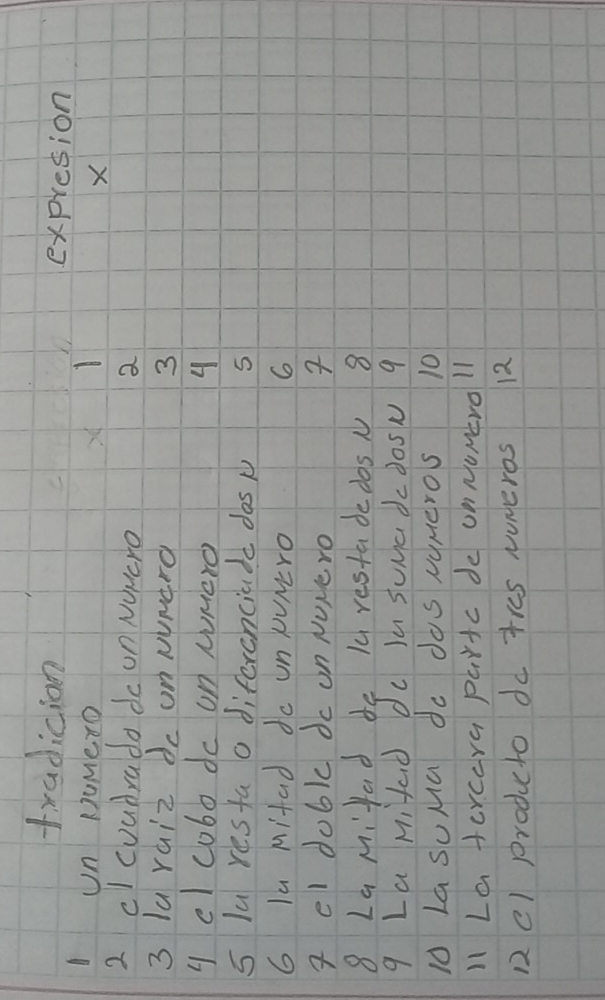 tradicion expresion
1 un numero 1 x
2 el cuadrado de un numero 2
3 la raiz de un numero 3
4 el cubo de un numero 4
5 la resta o diferencia de dos N 5
6 la mitad de un numero 6
7 el doble de un numero 7
8 La mitad de la resta de dos N 8
9 La mitad de la suma de dos N 9
10 La suma de dos numeros 10
11 La tercera parte de un numero 11
12 el producto de tres numeros 12